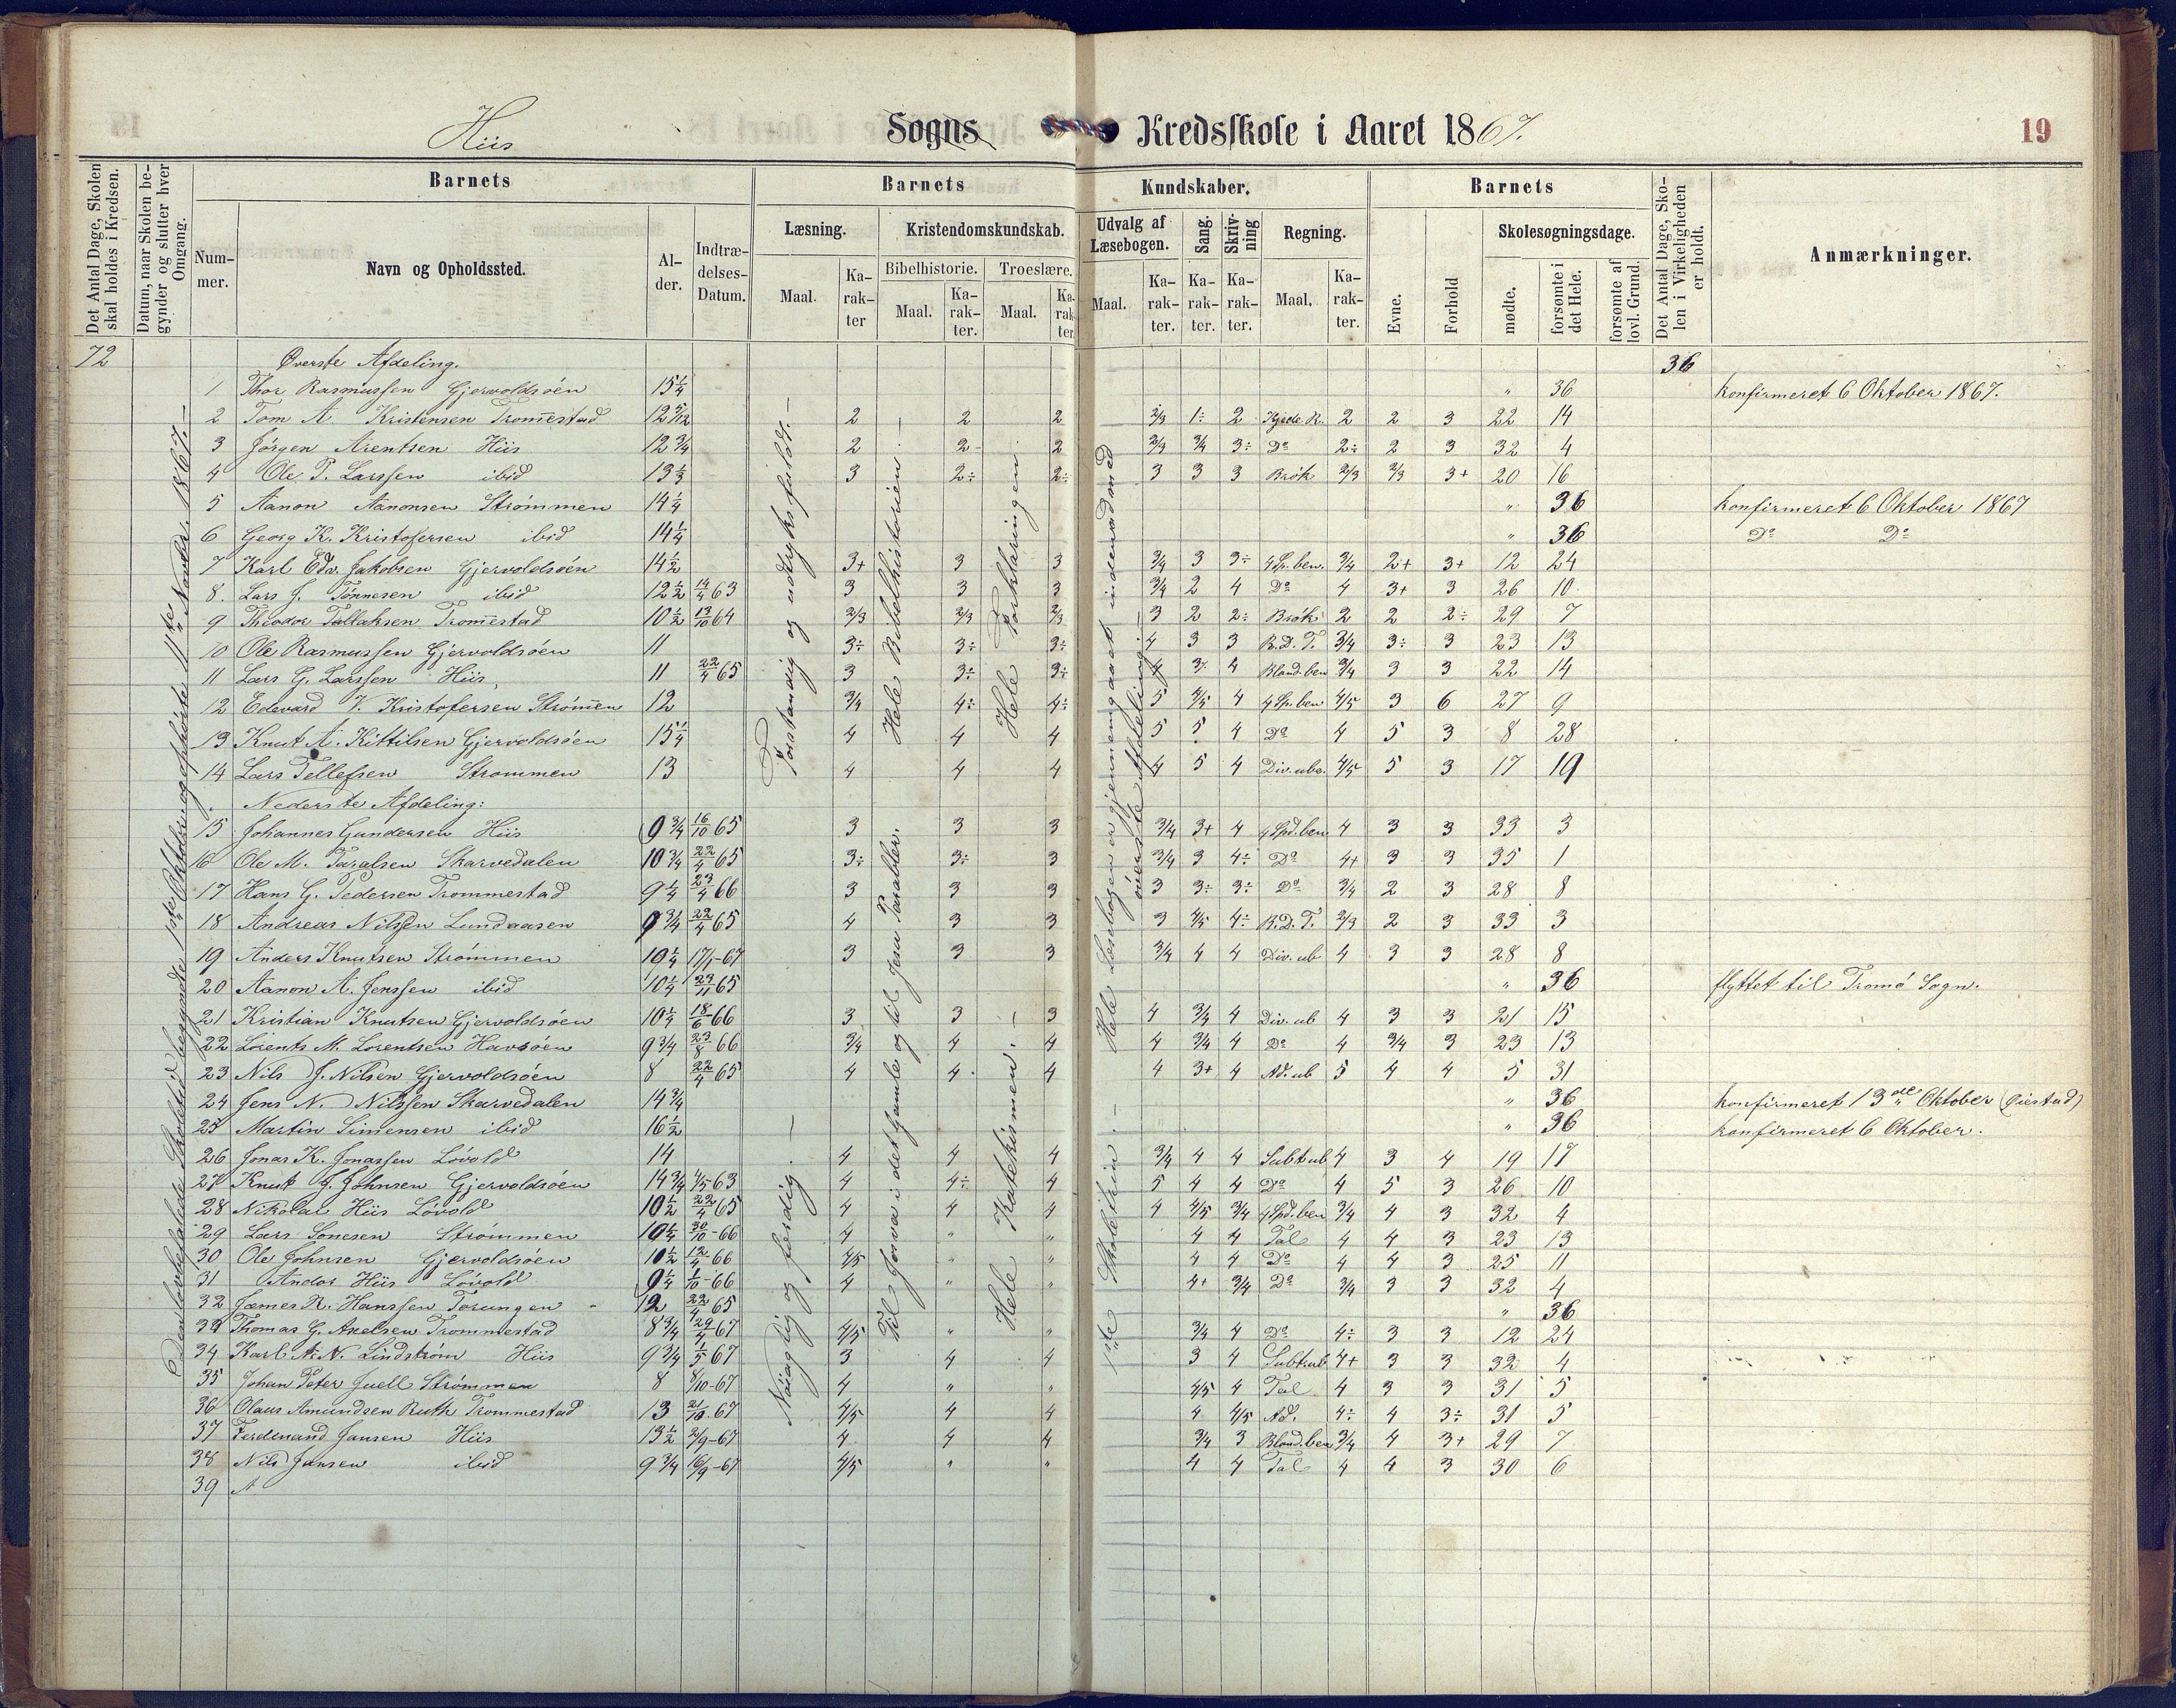 Hiis Sogns Kredsskole i Aaret 1867. 19
Det Antal Dage, Skolen skal holdes i Kredsen.
Datum, naar Skolen begynder og slutter hver Omgang.
Barnets
Nummer.
Navn og Opholdssted.
Alder.
Indtrædelses-Datum.
Barnets
Læsning.
Maal.
Karakter
Kristendomskundskab.
Bibelhistorie.
Maal.
Karakter.
Troeslære.
Maal.
Karakter
Kundskaber.
Udvalg af Læsebogen.
Maal.
Karakter.
Sang.
Karakter.
Skrivning
Karakter.
Regning.
Maal.
Karakter.
Barnets
Evne.
Forhold
Skolesøgningsdage.
mødte.
forsømte i det Hele.
forsømte af lovl. Grund.
Det Antal Dage, Skolen i Virkeligheden er holdt.
Anmærkninger.
72 Øverste Afdeling. 36
1 Thor Rasmussen Gjervoldsøen 15 1/4 " 36 konfirmeret 6 Oktober 1867.
2 Tom A. Kristensen Trom̅estad 12 5/12 2 2 2 2/3 1÷ 2 Kjede R. 2 2 3 22 14
3 Jørgen Arentsen Hiis 12 3/4 2 2 2 2/3 3/4 3÷ Do 2÷ 2 3 32 4
4 Ole T. Larssen ibid 13 1/3 3 2÷ 2÷ 3 3 3 Brøk 2/3 2/3 3+ 20 16
5 Aanon Aanonsen Strømmen 14 1/4 " 36 konfirmeret 6 Oktober 1867
6 Georg K. Kristofersen ibid 14 1/4 " 36 Do Do
7 Karl Edv. Jakobsen Gjervoldsøen 14 1/2 3+ 3 3 3/4 3 3÷ 4 Sp. ben. 3/4 2+ 3+ 12 24
8. Lars J. Tønnesen ibid 12 1/2 14/4 63 3 3 3 3/4 2 4 Do 4 3+ 3 26 10
9 Theodor Tallaksen Trom̅estad 10 1/2 13/10 64 2/3 2/3 2/3 3 2 2÷ Brøk 2 2 2÷ 29 7
10 Ole Rasmussen Gjervoldsøen 11 3÷ 3÷ 3÷ 4 3 3 R.D.T. 3/4 3÷ 3 23 13
11 Lars G. Larssen Hiis, 11 22/4 65 3 3÷ 3÷ 4 3÷ 4 Bland. ben 3/4 3 3 22 14
12 Edevard V. Kristofersen Strøm̅en 12 3/4 4÷ 4÷ 5 4/5 4 4 Sp. ben 4/5 3 6 27 9
13 Knut A. Kittilsen Gjervoldsøen 15 1/4 4 4 4 5 5 4 Do 4 5 3 8 28
14 Lars Tellefsen Strømmen 13 4 4 4 4 5 4 Div. ube. 4/5 5 3 17 19
Nederste Afdeling:
15 Johannes Gundersen Hiis 9 3/4 16/10 65 3 3 3 3/4 3+ 4 4 Spd. ben 4 3 3 33 3
16 Ole M. Taralsen Skarvedalen 10 3/4 22/4 65 3÷ 3÷ 3 3/4 3 4÷ Do 4+ 3 3 35 1
17 Hans G. Pedersen Trommestad 9 1/4 23/4 66 3 3 3 3 3÷ 3÷ Do 3/4 2 3 28 8
18 Andreas Nilssen Lundaasen 9 3/4 22/4 65 4 3 3 3 4/5 4÷ R.D.T. 2/3 2 3 33 3
19 Anders Knutsen Strømmen 10 1/4 17/1-67 3 3 3 3/4 4 4 Div. ub 4 3 3 28 8
20 Aanon A. Jenssen ibid 10 1/4 23/11 65 " 36 flyttet til Tromø Sogn.
21 Kristian Knutsen Gjervoldsøen 10 1/4 18/6 66 3 3 3 4 3/4 4 Div. ub 4 3 3 21 15
22 Lorents M. Lorentsen Havsøen 9 3/4 23/8 66 3/4 4 4 4 3/4 4 Do 4 3/4 3 23 13
23 Nils J. Nilsen Gjervoldsøen 8 22/4 65 4 4 4 4 3+ 4 Ad. ub 5 4 4 5 31
24 Jens N. Nilssen Skarvedalen 14 3/4 " 36 konfirmeret 13de Oktober (Øiestad)
25 Martin Simensen ibid 16 1/2 " 36 konfirmeret 6 Oktober.
26 Jonas K. Jonassen Løvold 14 4 4 4 3/4 4 4 Subt ub 4 3 4 19 17
27 Knut J. Johnsen Gjervoldsøen 14 3/4 4/5 63 4 4÷ 4 5 4 4 Do 4 5 3 26 10
28 Nikolai Hiis Løvold 10 1/2 22/4 65 4 4 4 4 4/5 3/4 4 Spd. ben 3/4 4 3 32 4
29 Lars Sonesen Strømmen 10 1/4 30/10-66 4 " " 4 4 Tal 4 4 3 23 13
30 Ole Johnsen Gjervoldsøen 10 1/2 12/4 66 4/5 " " 4 4 Do 4 4 3 25 11
31 Andor Hiis Løvold 9 1/4 1/10-66 4 " " 4+ 3/4 Do 3/4 3 3 32 4
32 James R. Hanssen Torungen 12 22/4 65 " 36
33 Thomas G. Axelsen Trommestad 8 3/4 29/4-67 4/5 " " 3/4 4 Do 4÷ 3 3 12 24
34 Karl A. N. Lindstrøm Hiis 9 3/4 1/5 67 3 4 4 3 4 Subt ub 4+ 3 3 32 4
35 Johan Peter Juell Strømmen 8 8/10-67 4 " " 4/5 4 Tal 4 3 3 31 5
36 Olaus Amundsen Ruth Trommestad 13 21/10.67 4/5 4 4 4 4/5 Ad. 4÷ 4 3÷ 31 5
37 Ferdinand Jansen Hiis 13 1/2 2/9-67 4 4 4 3/4 3 Bland. ben 3/4 4 3+ 29 7
38 Nils Jansen ibid 9 3/4 16/9-67 4/5 " " 4 4 Tal 4 4 3 30 6
39
Den lovbefalede Skoletid begyndte 1ste Oktober og ophørte 11te Novbr. 1867.
Forstandig og udtryksfuldt.
Nøiagtig og færdig.
Hele Bibelhistorien.
Til Josva i det Gamle og til Jesu Parabler.
Hele Forklaringen
Hele Katekismen.
Hele Læsebogen er gjennemgaaet indenad med øverste Afdeling.
1ste Skoletrin.